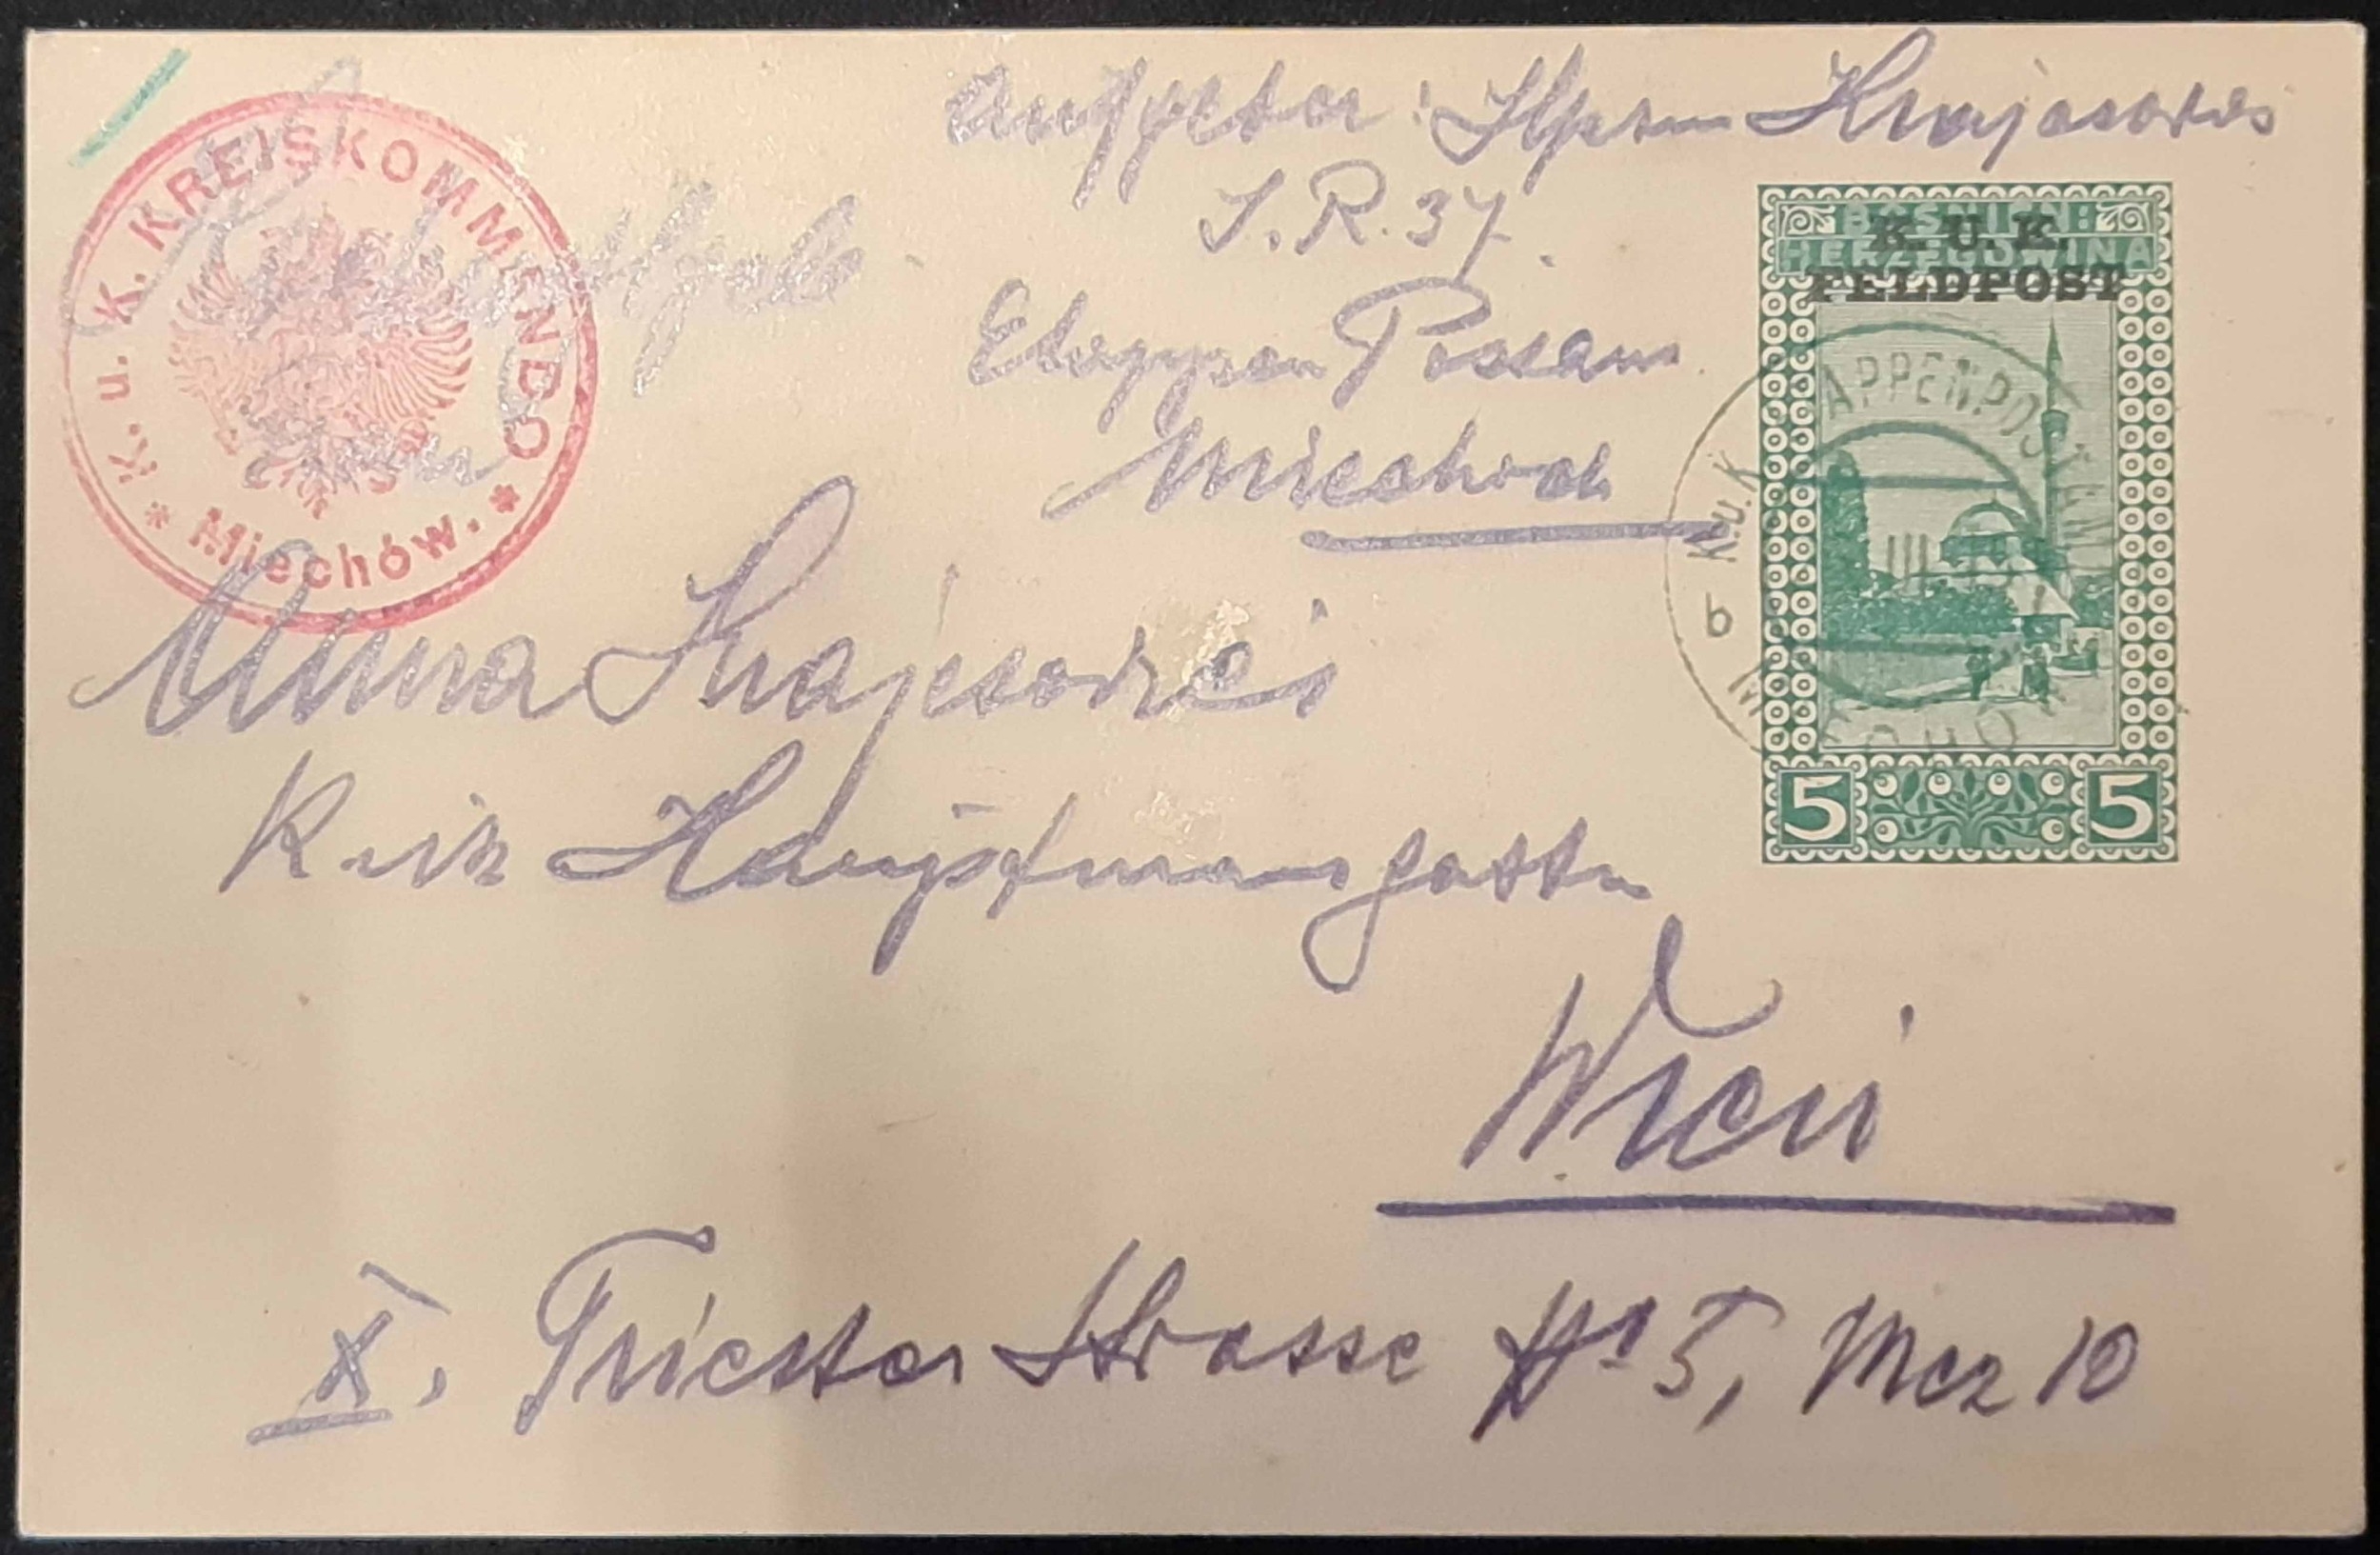 K. u. K. KREISKOMMENDO
* Miechów. *
Aufgeber: Hptm Krajcsovics
I. R. 37.
Etappen Postamt
Miechow
BOSNIEN-
HERZEGOWINA
K. U. K.
FELDPOST
K. u. K. ETAPPENPOSTAMT
III
b
MIECHÓW
5 5
Anna Krajcsovics
K und K Hauptmansgattin
Wien
X. Triester Strasse No 5, Mez 10